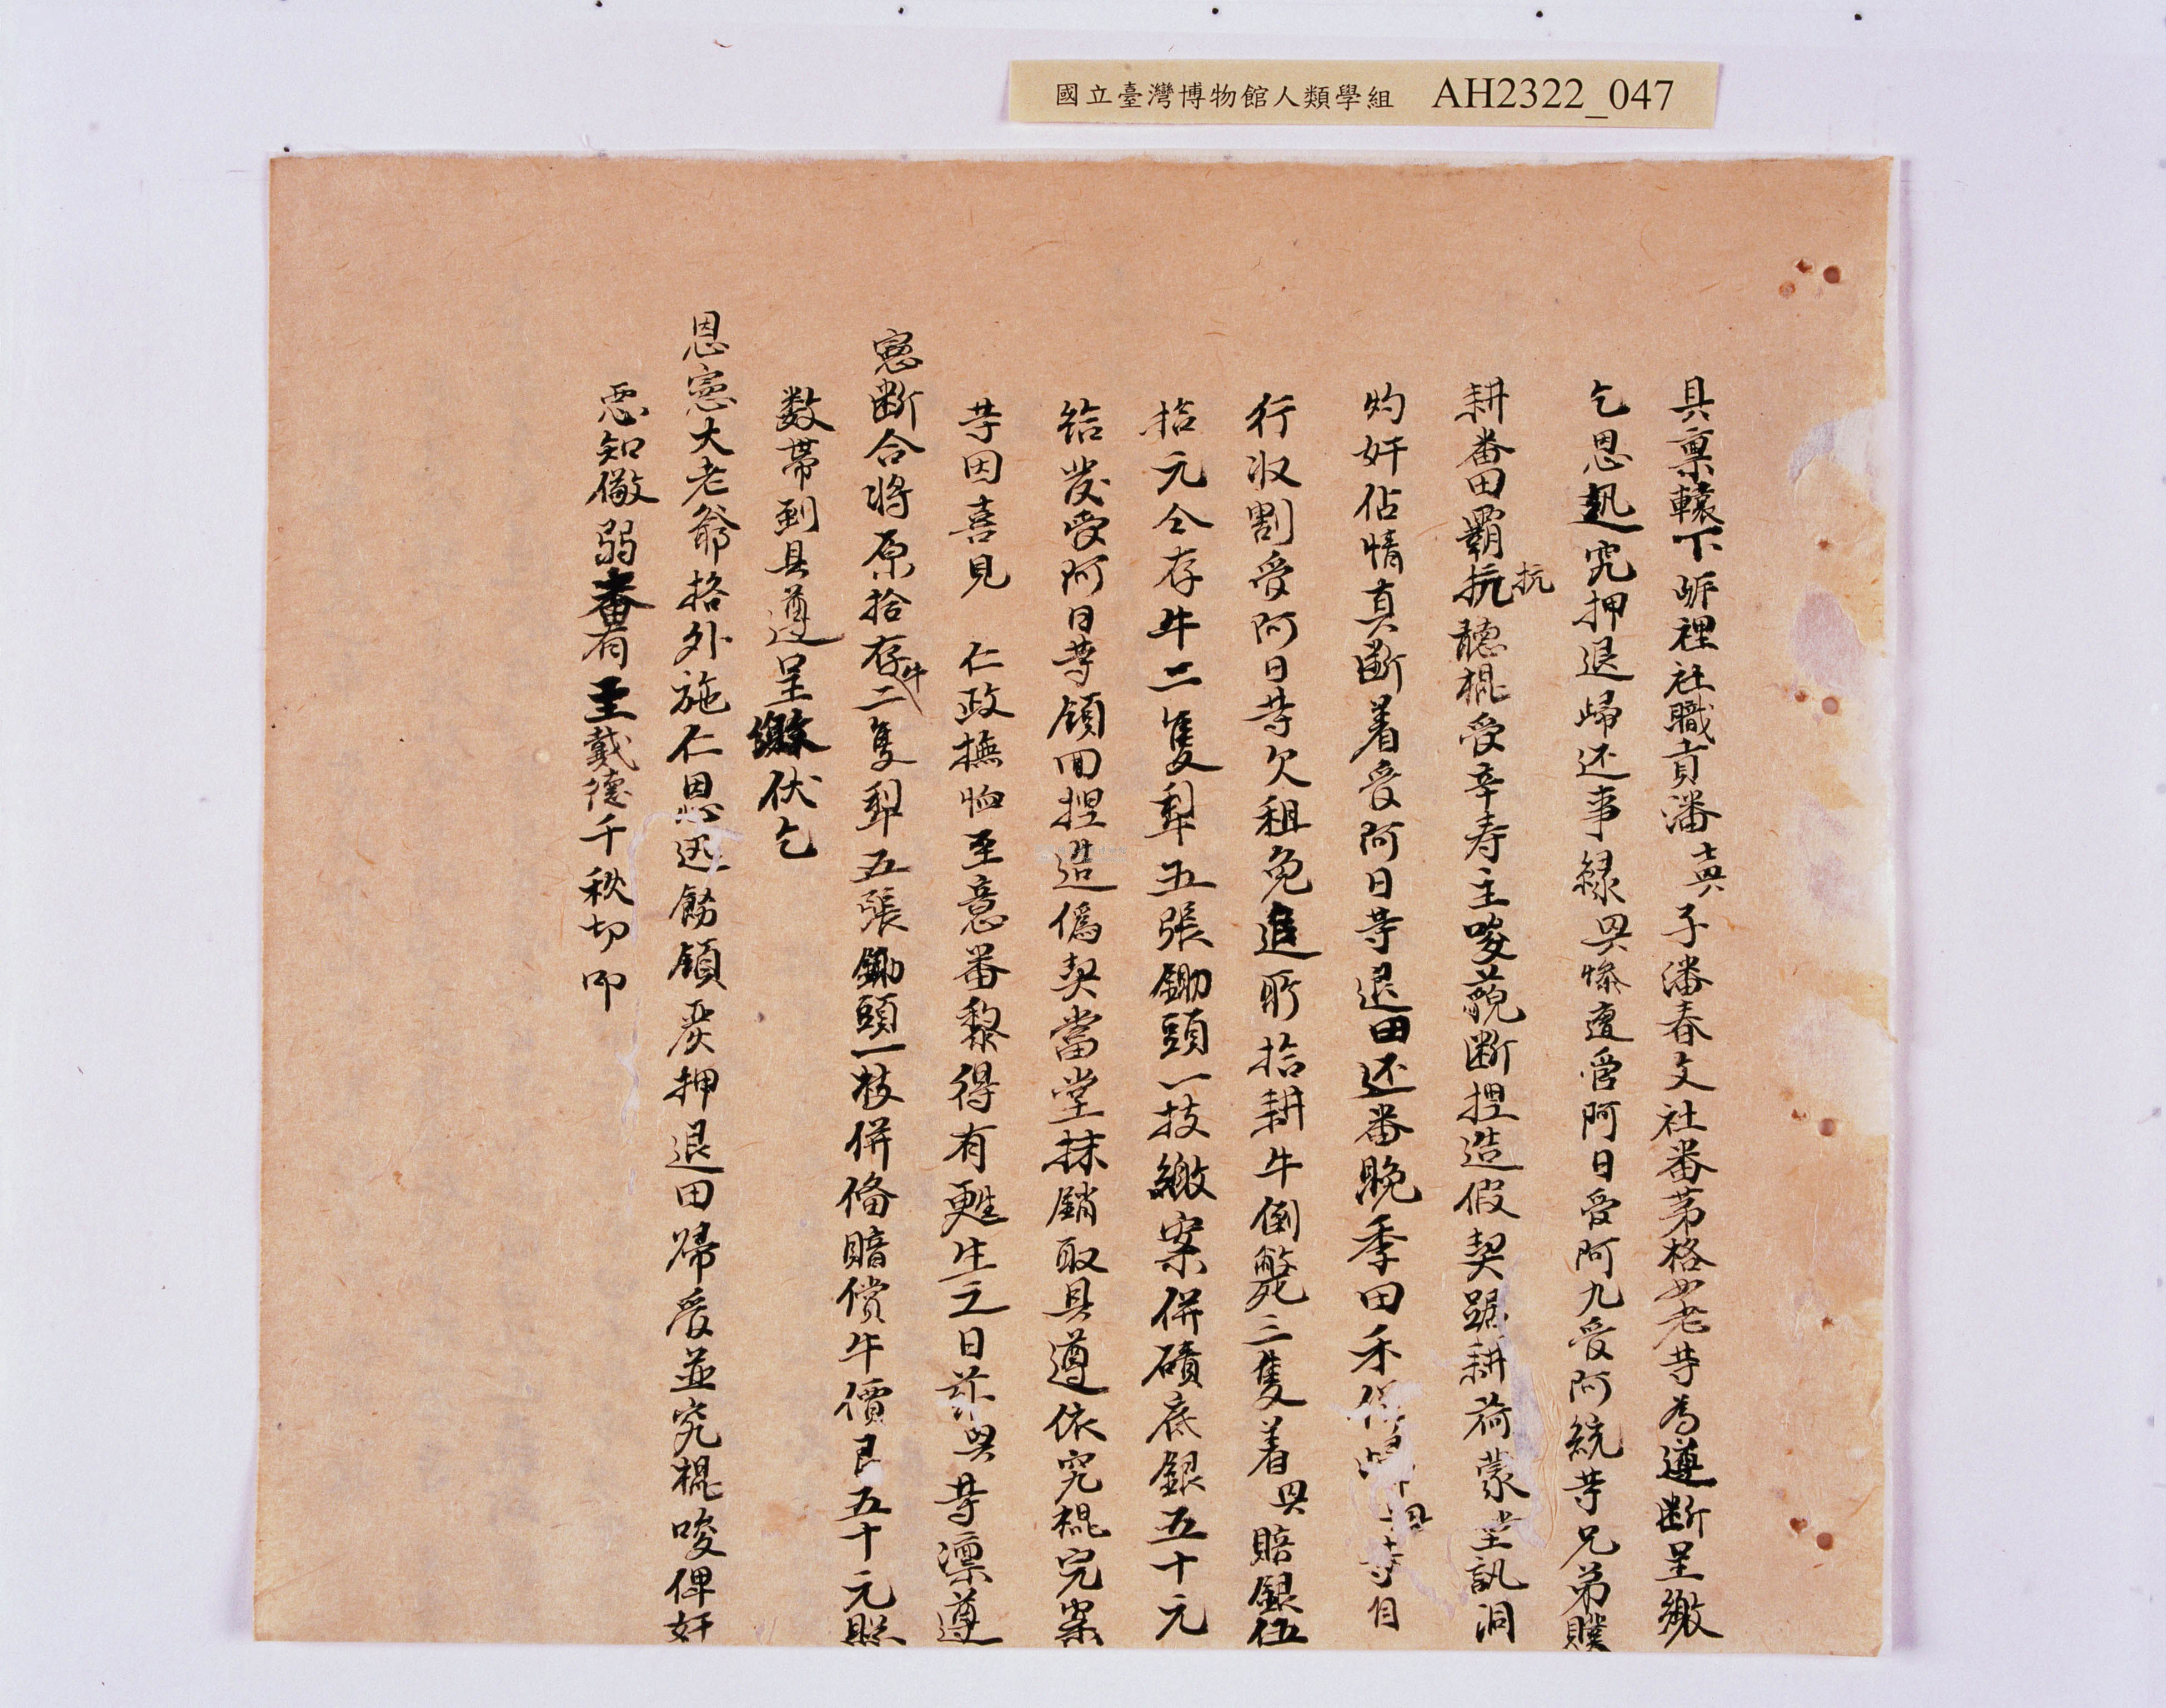 國立臺灣博物館人類學組 AH2322_047
具稟轅下岸裡社職貢潘士興子潘春文社番茅格女老等為遵斷呈繳
乞恩究押退歸还事緣興慘遭受阿日受阿九受阿統等兄弟贌
耕番田霸抗抗聽棍受辛寿主唆藐断捏造假契踞耕荷蒙堂訊洞
灼奸佔情真斷着受阿日等退田还番晚季田禾歸等自
行收割受阿日等欠租免追所拾耕牛倒斃三隻着興賠銀伍
拾元仝存牛二隻犁五張鋤頭一技繳案併磧底銀五十元
給發受阿日等領回捏造偽契當堂抹銷取具遵依究棍完案
等因喜見 仁政撫恤至意番黎得有甦生之日茲興等凛遵
憲斷合將原拾存牛二隻犁五張鋤頭一枝併偹賠償牛價艮五十元照
数帶到具遵呈繳伏乞
恩憲大老爺格外施仁恩迅飭領差押退田歸受並究棍唆俾奸
惡知儆弱番有主戴德千秋切叩